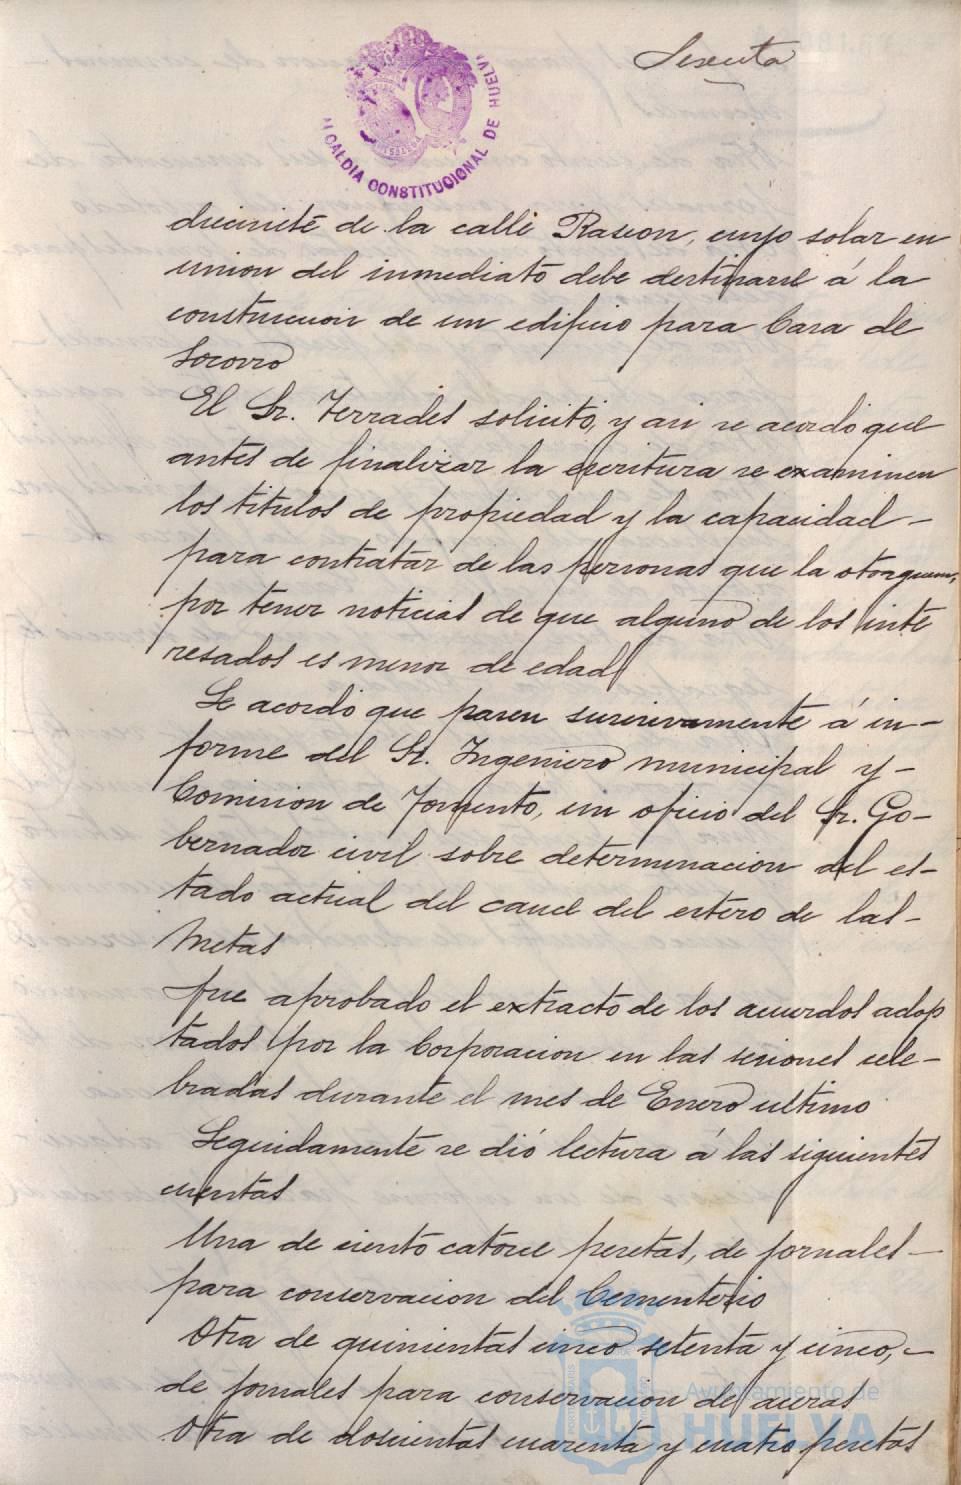 Sesenta
ALCALDIA CONSTITUCIONAL DE HUELVA
diecisiete de la calle Rascon, cuyo solar en
union del inmediato debe destinarse á la
construccion de un edificio para Casa de
Socorro
El Sr. Terrades solicitó, y asi se acordo que
antes de finalizar la escritura se examinen
los titulos de propiedad y la capacidad -
para contratar de las personas que la otorguen,
por tener noticias de que alguno de los inte
resados es menor de edad
Se acordó que pasen sucesivamente á in-
forme del Sr. Ingeniero municipal y -
Comision de Fomento, un oficio del Sr. Go-
bernador civil sobre determinacion del es-
tado actual del cauce del estero de las -
Metas
Fue aprobado el extracto de los acuerdos adop
tados por la Corporacion en las sesiones cele-
bradas durante el mes de Enero ultimo
Seguidamente se dió lectura á las siguientes
cuentas
Una de ciento catorce pesetas, de jornales -
para conservacion del Cementerio
Otra de quinientas cinco setenta y cinco, -
de jornales para conservacion de aceras
Otra de doscientas cuarenta y cuatro pesetas
Ayuntamiento de
HUELVA